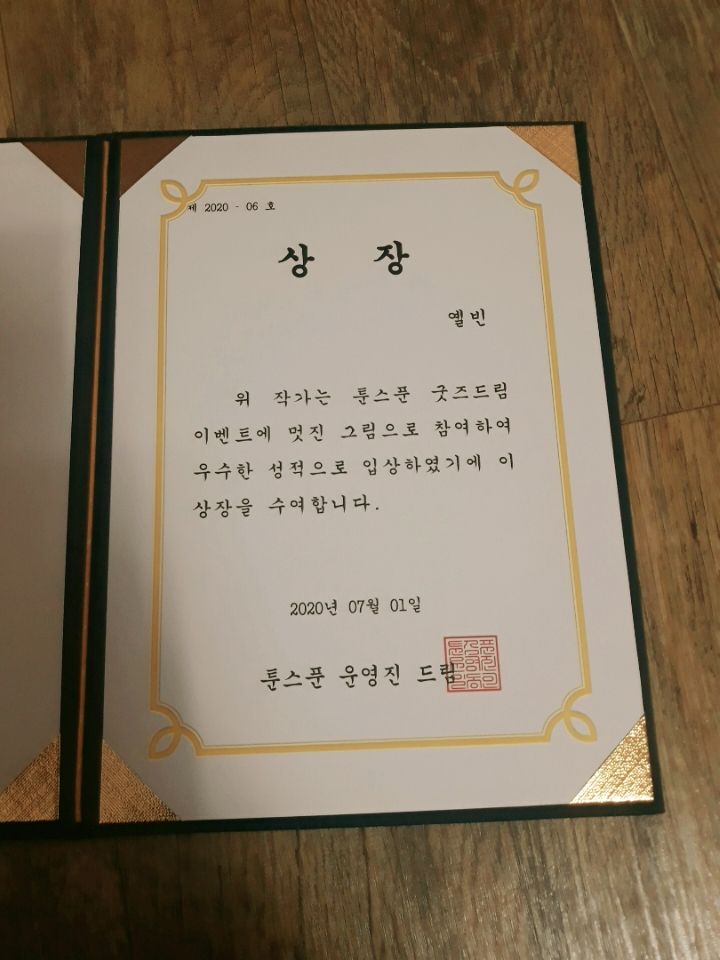 제 2020 - 06 호
상 장
옐빈
위 작가는 툰스푼 굿즈드림
이벤트에 멋진 그림으로 참여하여
우수한 성적으로 입상하였기에 이
상장을 수여합니다.
2020년 07월 01일
툰스푼 운영진 드림